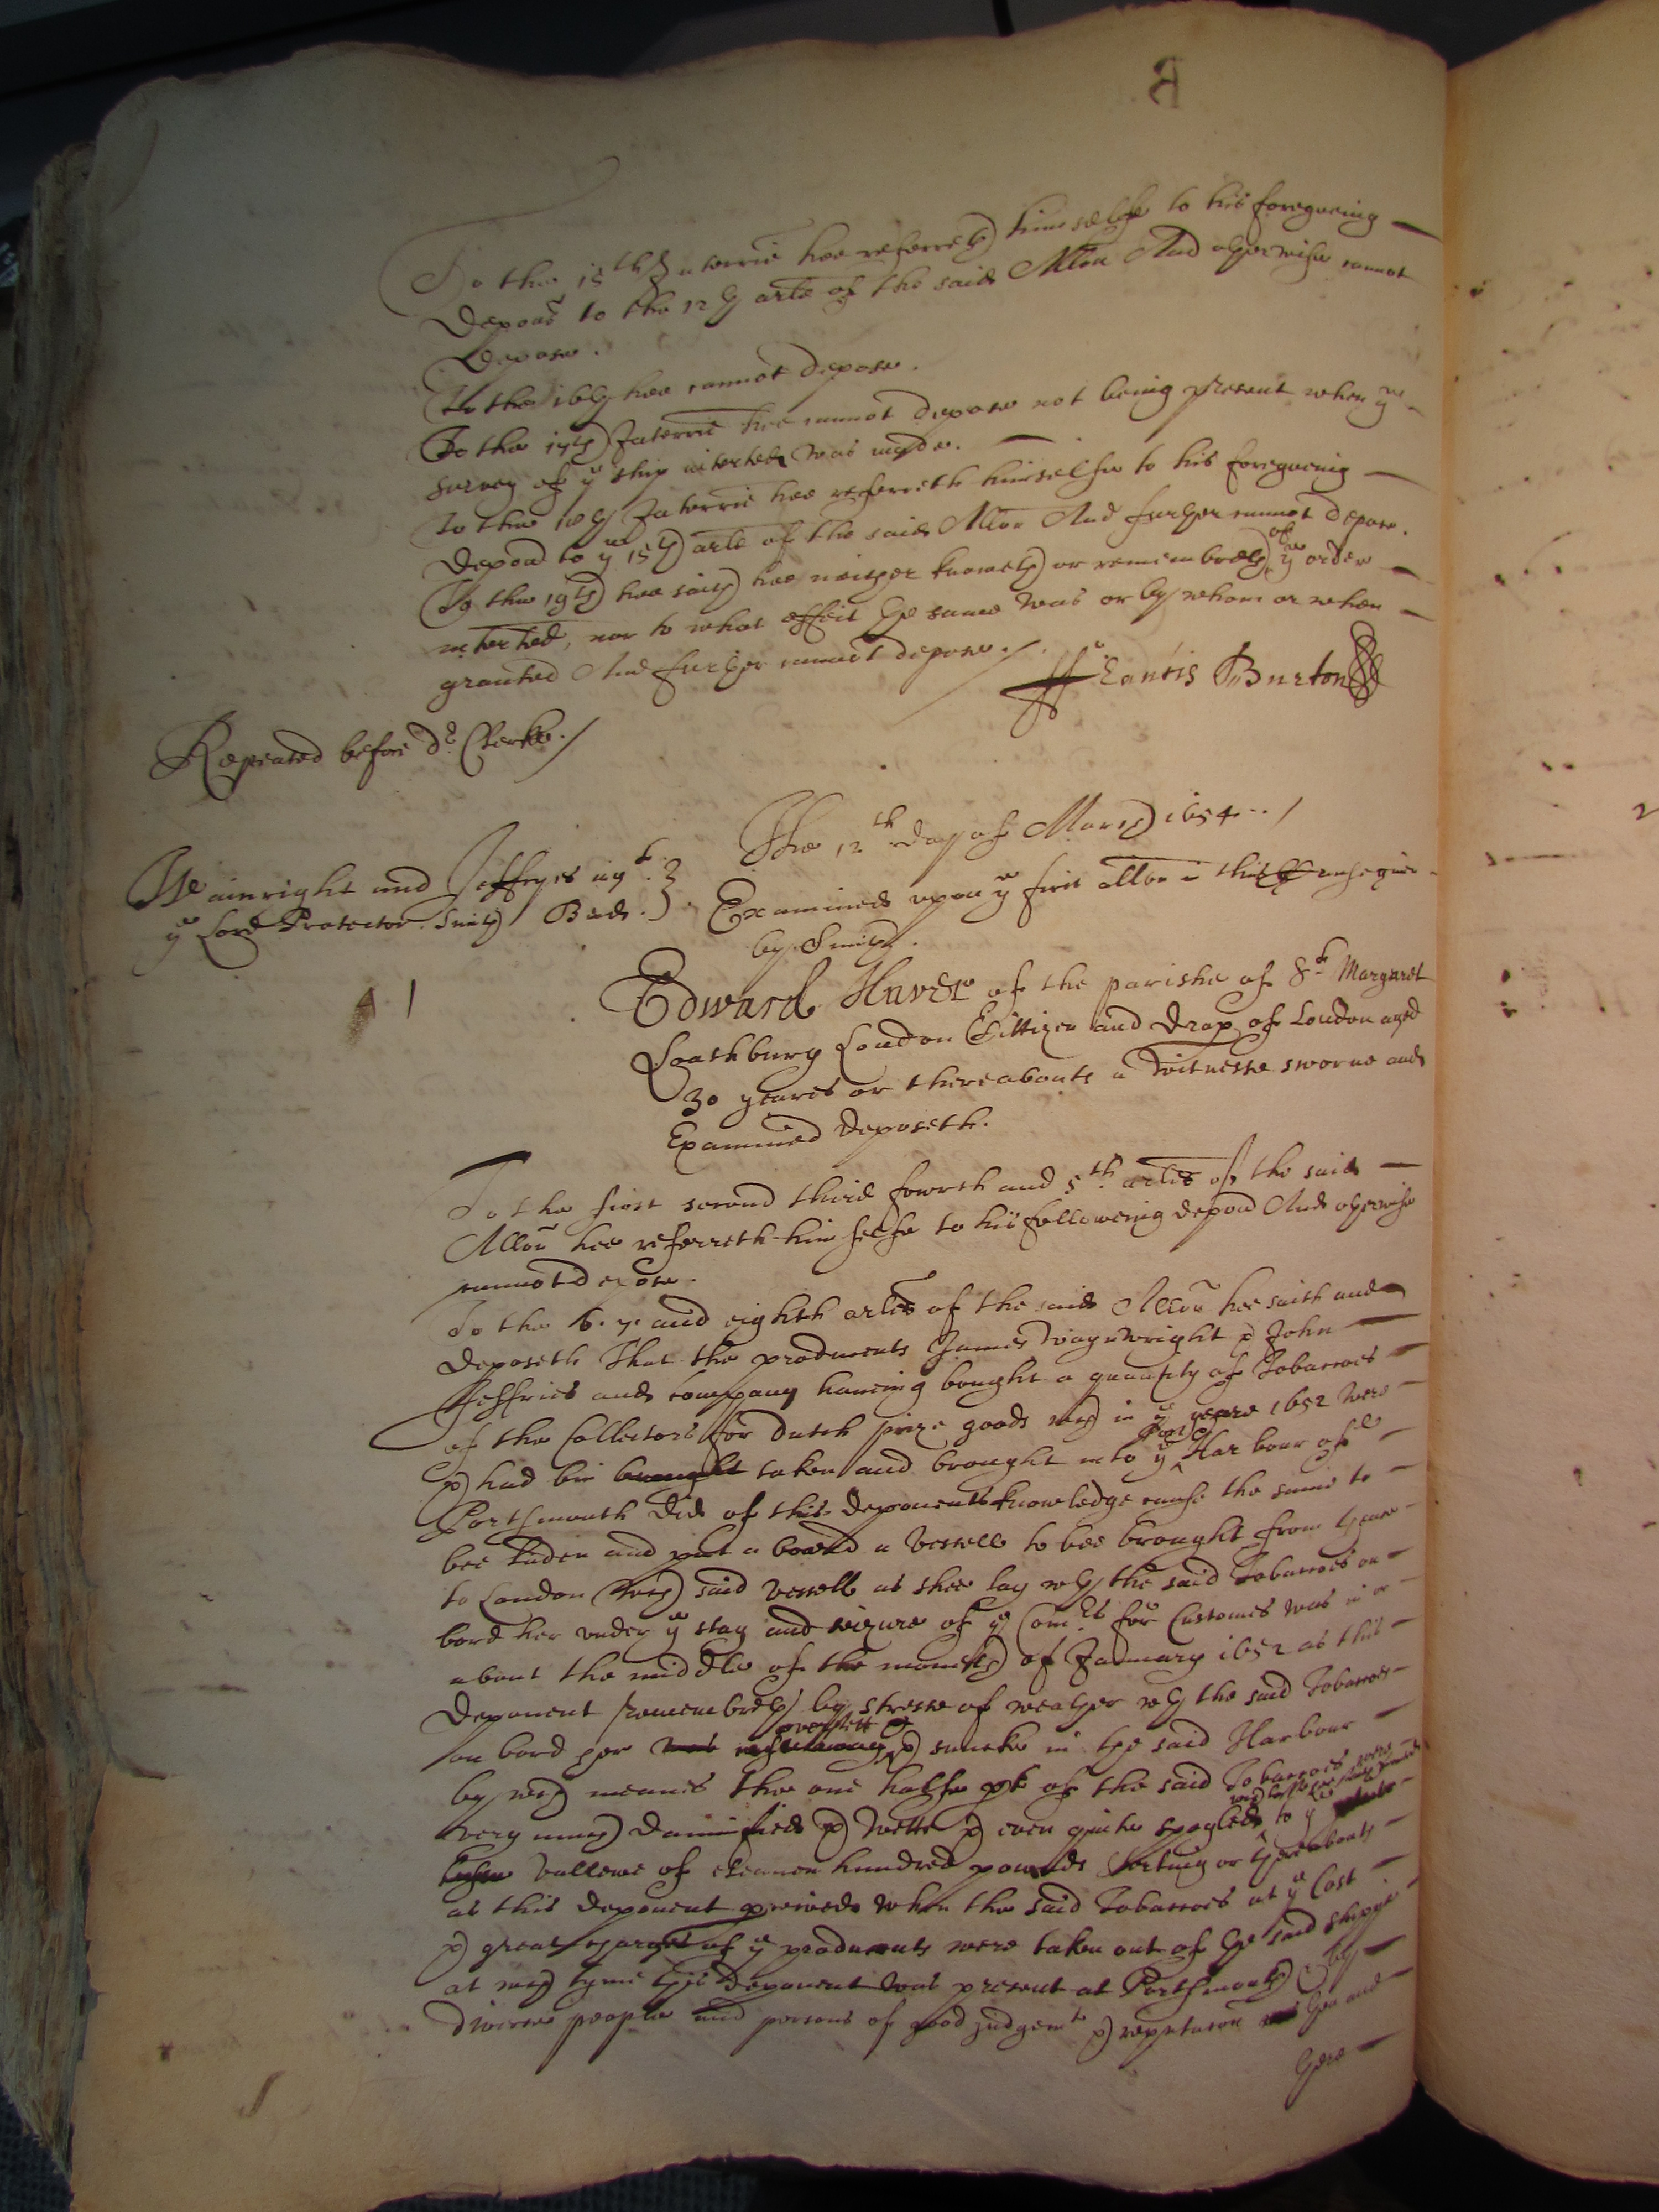 To the 15th Interrie hee referreth himselfe to his foregoeing
Depon̄ to the 12th arle of the said Allon And otherwise cannot
Depose.
To the 16th hee cannot depose.
To the 17th Interrie hee cannot depose not being present when ye
survey of ye ship interted was made.
To the 18th Interrie hee referreth himselfe to his foregoeing
depon̄ to ye 15th arle of the said Allon And further cannot depose.
To the 19th hee saith hee neither knoweth or remembreth of ye order
interted, nor to what effect the same was or by whom or when
granted And further cannot depose./
ffrancis Burton
Repeated before Dr. Clerke./
The 12th day of March 1654../
Wainright and Jeffryes agt.
ye Lord Protector. Smith Budd.
Examined upon ye first allon in the behalfe given
by Smith.
Edward Haver of the parishe of St. Margaret
Loathbury London Cittizen and Drap of London aged
30 yeares or thereabouts a witnesse sworne and
Examined deposeth.
To the first second third fowrth and 5th. arles of the said
Allon hee referreth himselfe to his followeing depon̄ And otherwise
cannot depose.
To the 6. 7. and eighth arles of the said Allon hee saith and
deposeth That the producents James Waynwright & John
Jeffries and company haveing bought a quantity of Tobaccoes
of the Collectors for dutch prize goods wch in ye yeare 1652 were
& had bin brought taken and brought into ye Port & Harbour of
Porthmouth did of this deponents knowledge cause the same to
bee laden and put a board a vessell to bee brought from thence
to London Wch said vessell as shee lay wth the said Tobaccoes on
bord her under ye stay and seizure of ye Comrs for Customes was in or
about the middle of the moneth of January 1652 as this
deponent remembreth by stresse of weather wth the said Tobaccoes
on bord her was oversett & suncke in the said Harbour
by wch meanes the one halfe pt of the said Tobaccoes were
very much damnified & wette & even quite spoyled to ye
vallewe of eleaven hundred pounds sterling or thereabouts
as this deponent pceived when the said Tobaccoes at ye Cost
& great charge of ye producents were taken out of the said shipp
at wch tyme this deponent was present at Porthmouth by
diverse people and persons of good judgemt & reputacon then and
there